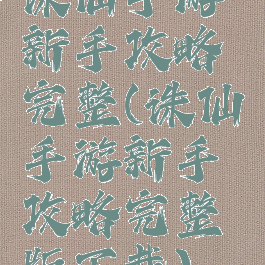 诛仙手游
新手攻略
完整(诛仙
手游新手
攻略完整
版下载)